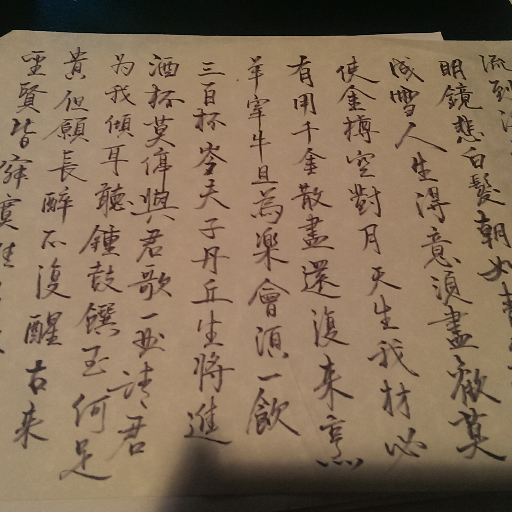 流到
明鏡悲白髮朝如青
成雪人生得意須盡歡莫
使金樽空對月天生我材必
有用千金散盡還復来烹
羊宰牛且為樂會須一飲
三百杯岑夫子丹丘生將進
酒杯莫停與君歌一曲請君
为我傾耳聽鍾鼓饌玉何足
貴但願長醉不復醒古来
聖賢皆寂寞惟